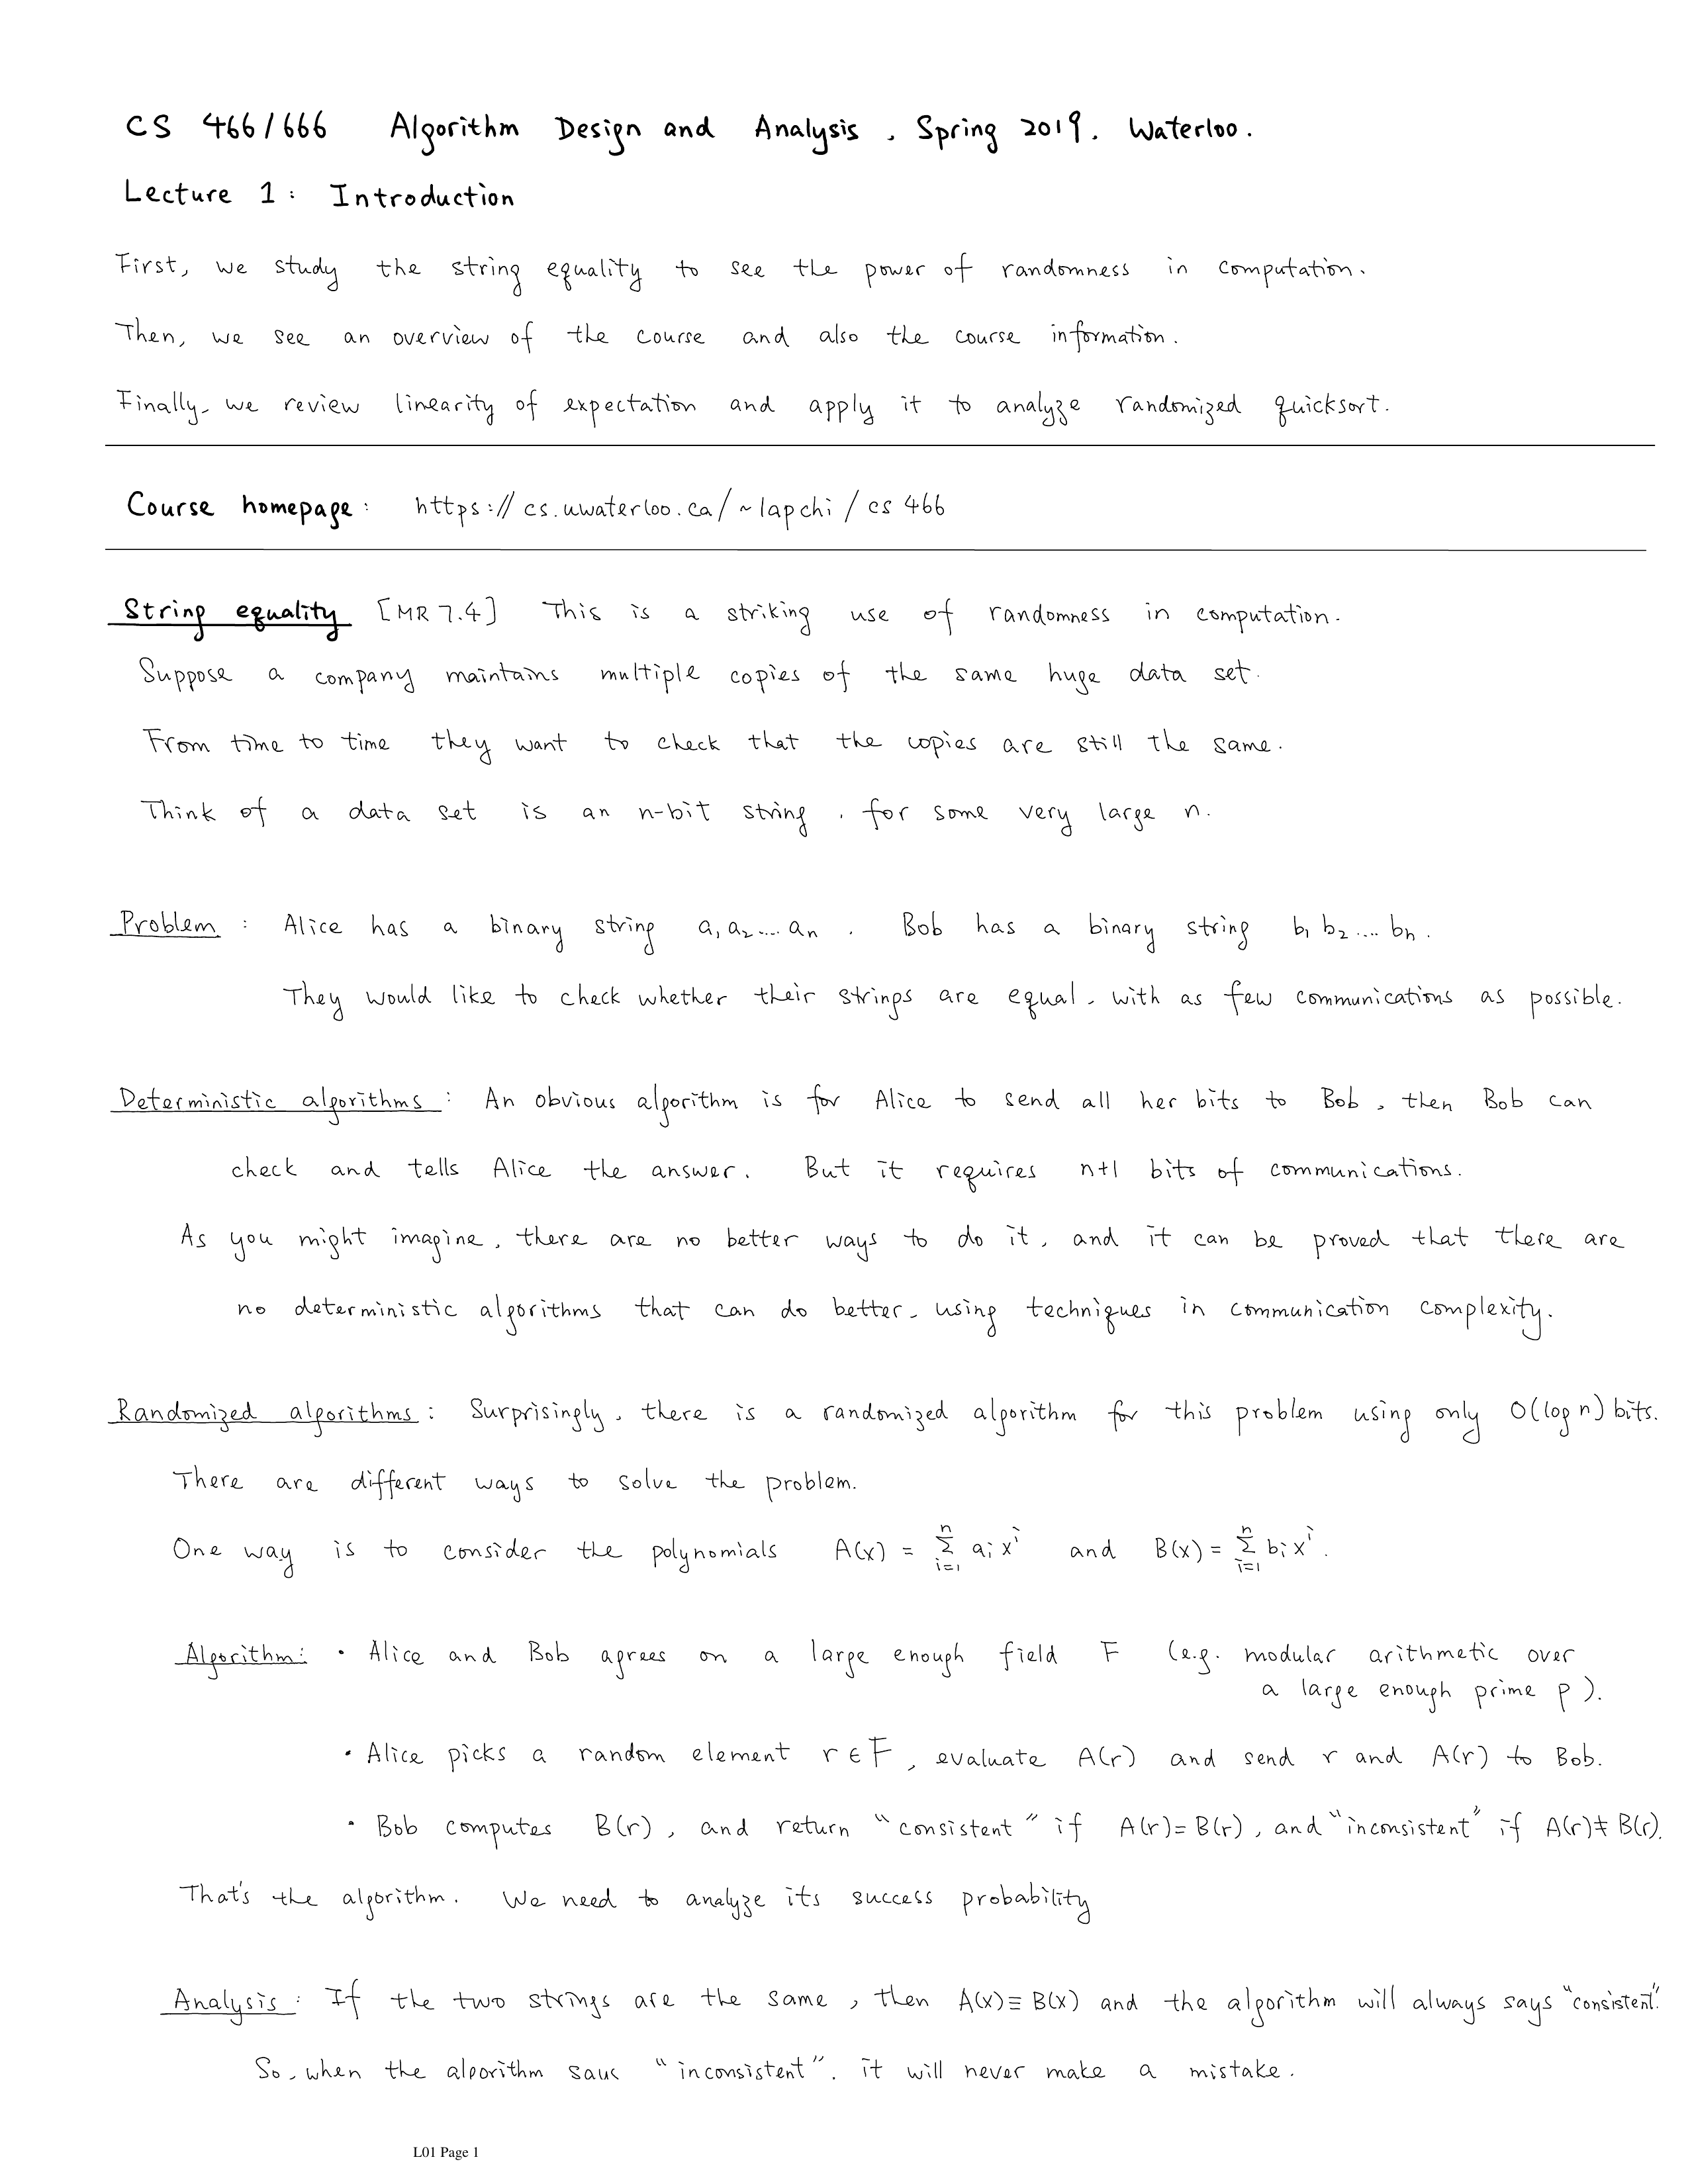 CS 466/666 Algorithm Design and Analysis, Spring 2019. Waterloo.
Lecture 1: Introduction
First, we study the string equality to see the power of randomness in computation.
Then, we see an overview of the course and also the course information.
Finally, we review linearity of expectation and apply it to analyze randomized quicksort.
Course homepage: https://cs.uwaterloo.ca/~lapchi/cs466
String equality [MR 7.4] This is a striking use of randomness in computation.
Suppose a company maintains multiple copies of the same huge data set.
From time to time they want to check that the copies are still the same.
Think of a data set is an n-bit string, for some very large n.
Problem: Alice has a binary string a₁a₂....aₙ. Bob has a binary string b₁b₂....bₙ.
They would like to check whether their strings are equal, with as few communications as possible.
Deterministic algorithms: An obvious algorithm is for Alice to send all her bits to Bob, then Bob can
check and tells Alice the answer. But it requires n+1 bits of communications.
As you might imagine, there are no better ways to do it, and it can be proved that there are
no deterministic algorithms that can do better, using techniques in communication complexity.
Randomized algorithms: Surprisingly, there is a randomized algorithm for this problem using only O(log n) bits.
There are different ways to solve the problem.
One way is to consider the polynomials A(x) = Σ_{i=1}^{n} aᵢxⁱ and B(x) = Σ_{i=1}^{n} bᵢxⁱ.
Algorithm: • Alice and Bob agrees on a large enough field F (e.g. modular arithmetic over
a large enough prime p).
• Alice picks a random element r∈F, evaluate A(r) and send r and A(r) to Bob.
• Bob computes B(r), and return "consistent" if A(r)=B(r), and "inconsistent" if A(r)≠B(r).
That's the algorithm. We need to analyze its success probability
Analysis: If the two strings are the same, then A(x)≡B(x) and the algorithm will always says "consistent".
So, when the algorithm says "inconsistent", it will never make a mistake.
L01 Page 1